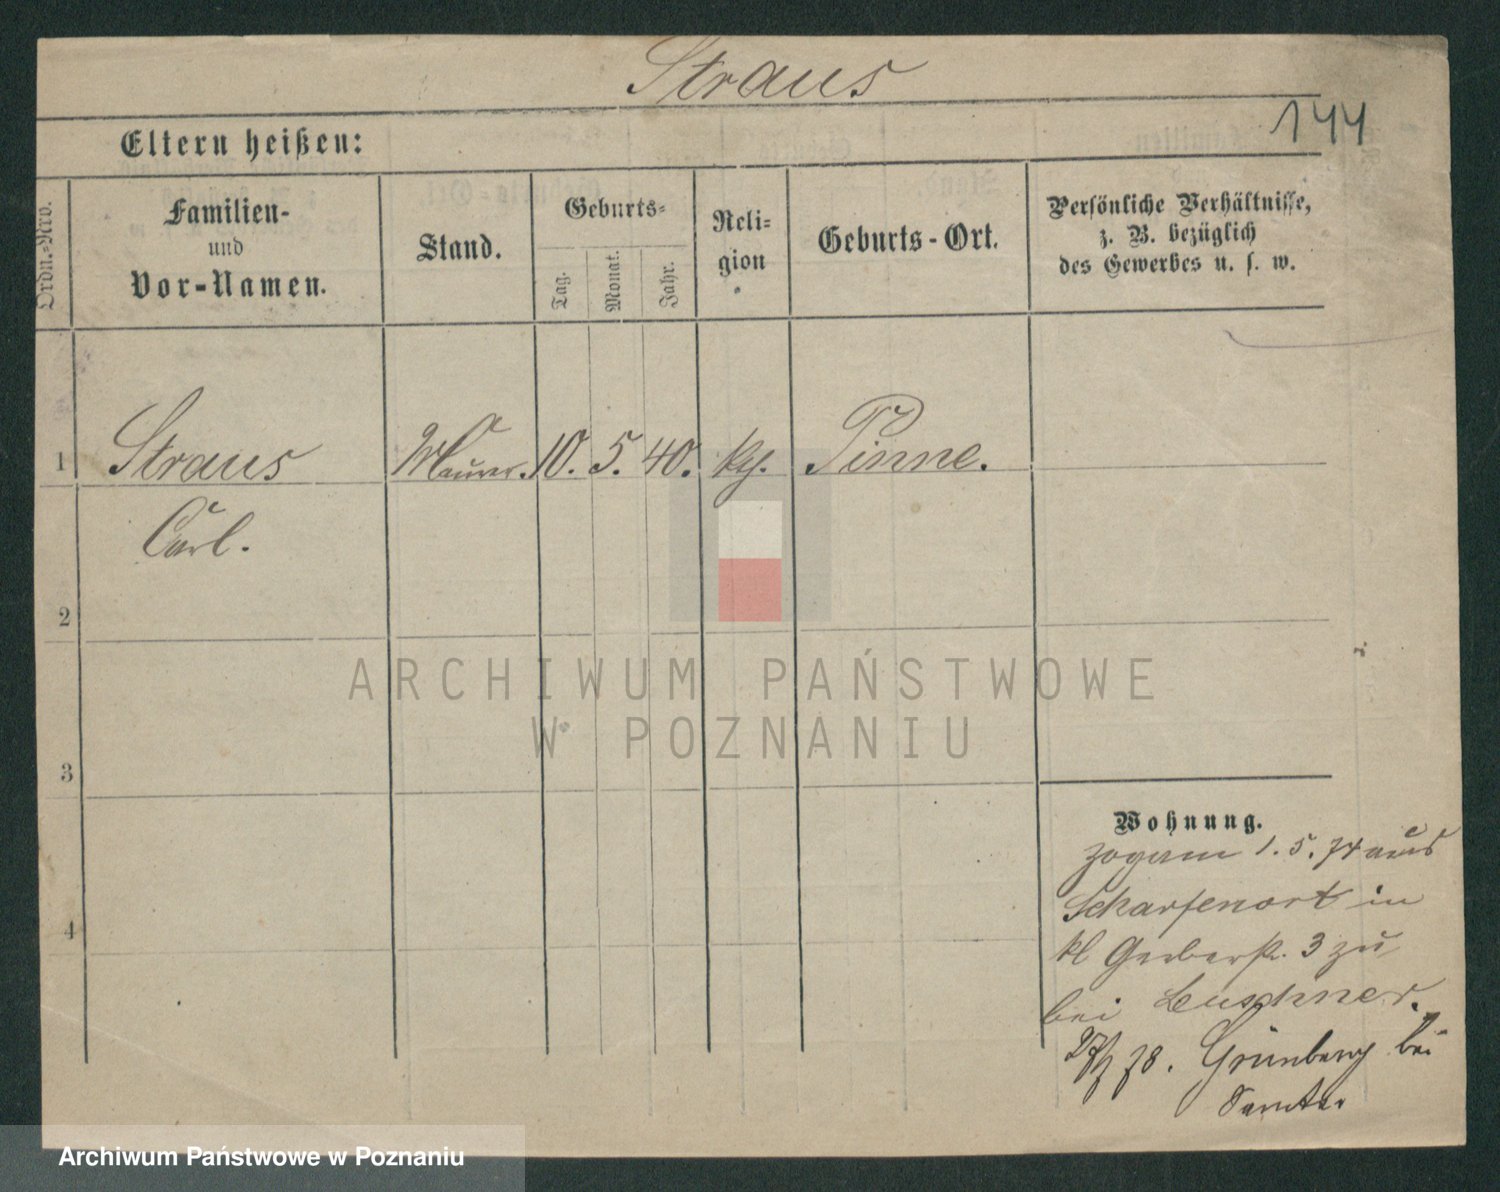 Straus
144
Eltern heißen:
Ordn.-Nro.
Familien-
und
Vor-Namen.
Stand.
Geburts-
Tag.
Monat.
Jahr.
Reli-
gion
Geburts-Ort.
Persönliche Verhältnisse,
z. B. bezüglich
des Gewerbes u. s. w.
1 Straus Maurer. 10. 5. 40. Pinne.
Carl.
2
3
4
Wohnung.
zog am 1. 5. 74 aus
Scharfenort in
kl Gerberstr. 3 zu
bei Leuschner.
78. Grünberg bei
Samter
ARCHIWUM PAŃSTWOWE
W POZNANIU
Archiwum Państwowe w Poznaniu